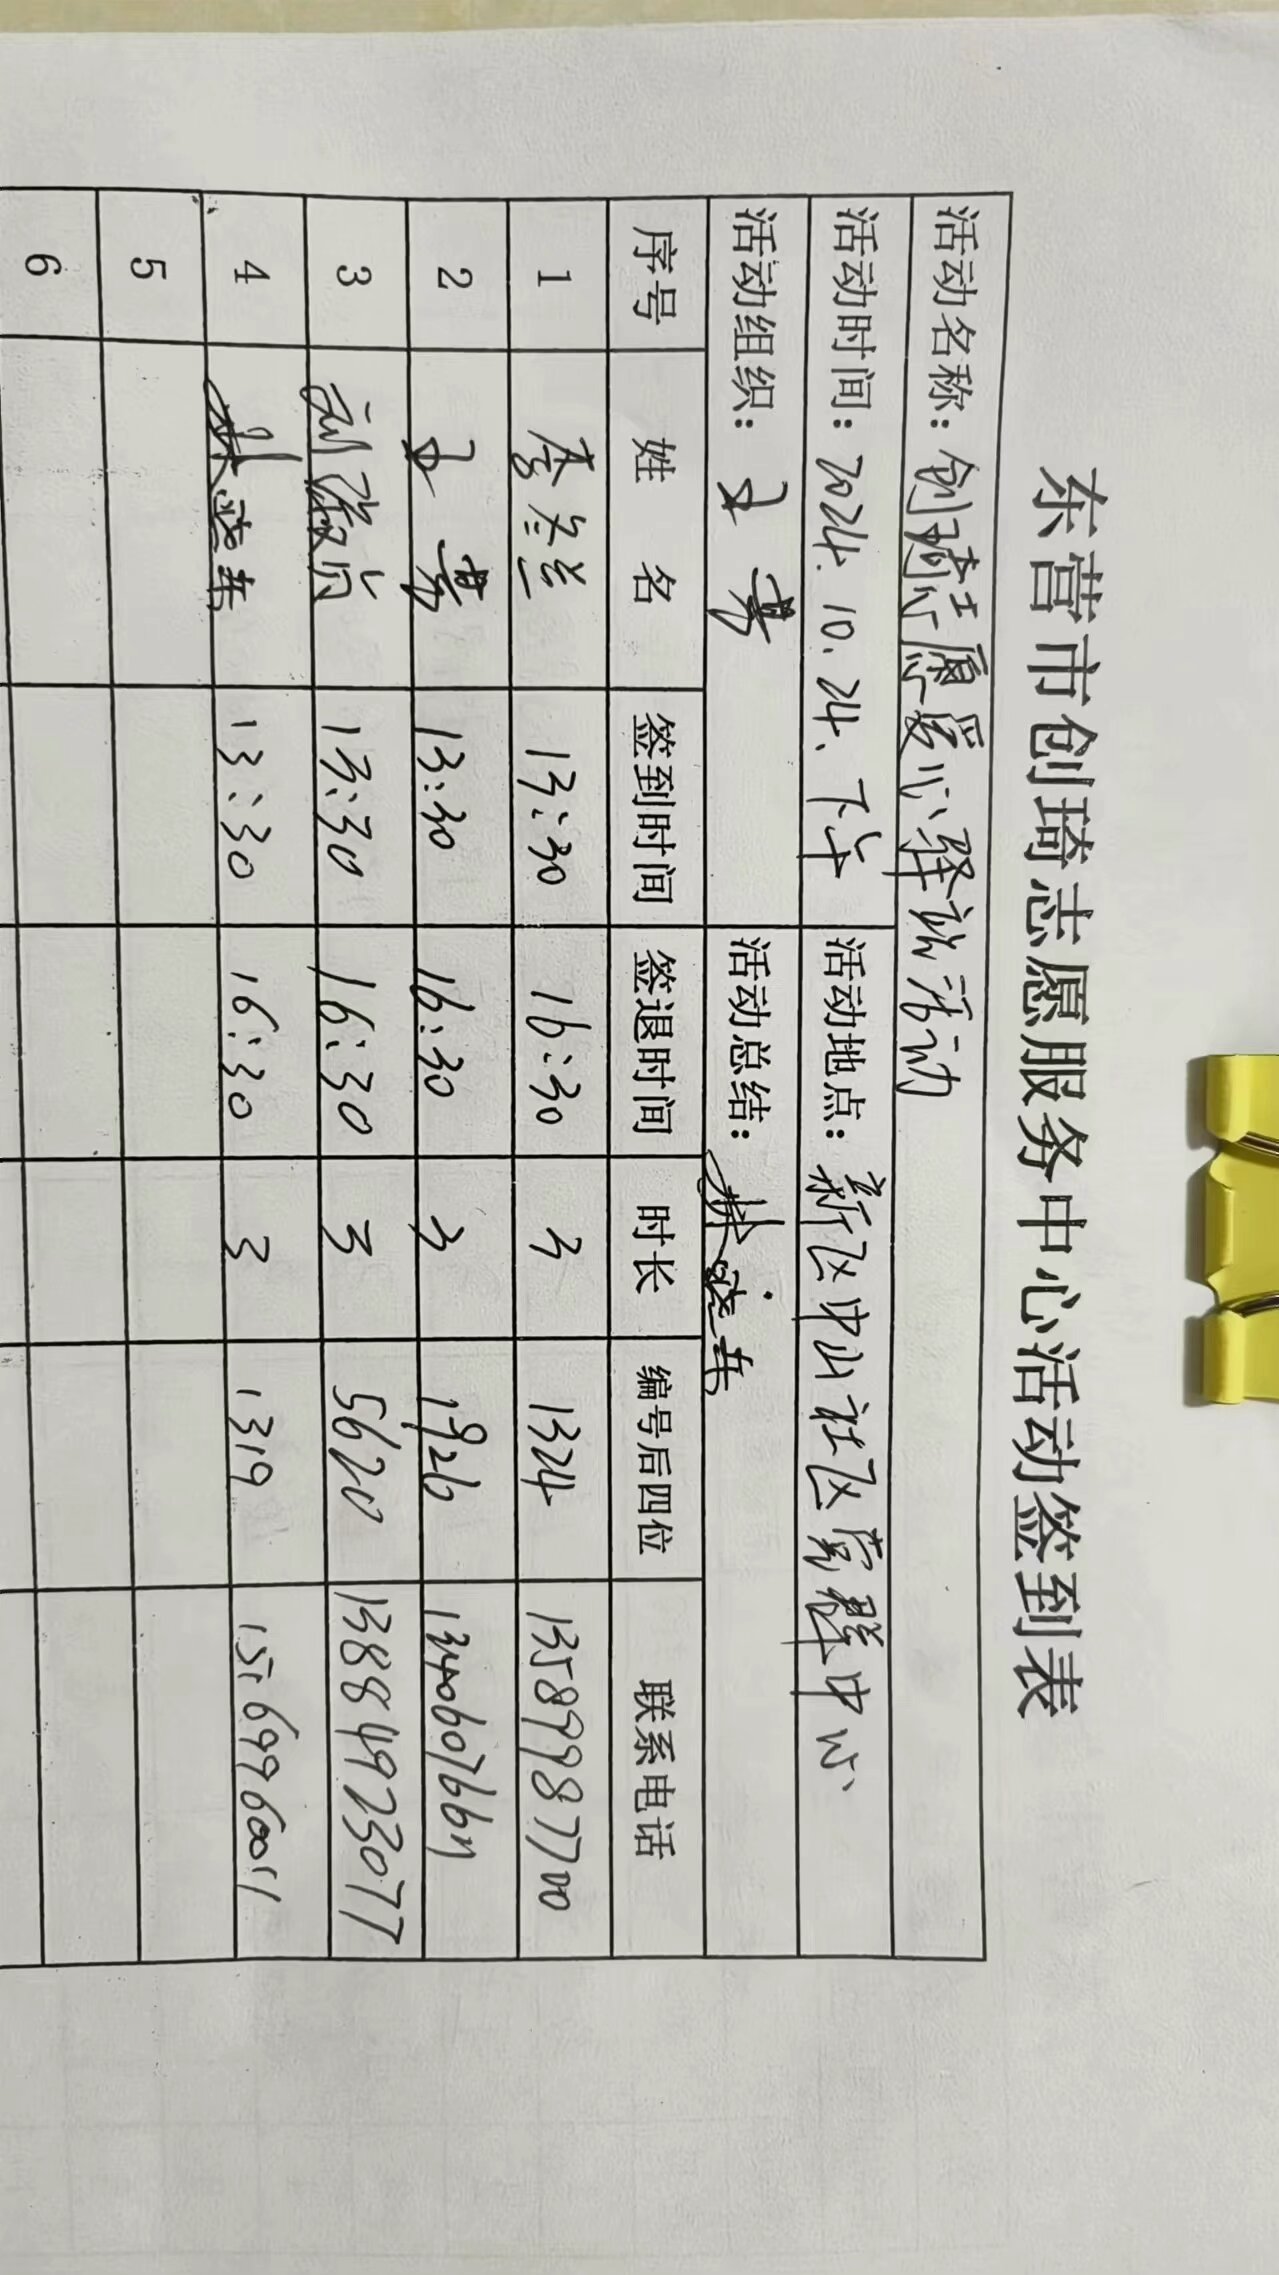 东营市创琦志愿服务中心活动签到表
活动名称：创琦志愿爱心驿站活动
活动时间：2024.10.24.下午 活动地点：新区中山社区党群中心
活动组织：王 活动总结：林晓
序号 姓名 签到时间 签退时间 时长 编号后四位 联系电话
1 李冬兰 13:30 16:30 3 1324 13589987700
2 王 13:30 16:30 3 1926
3 刘 13:30 16:30 3 5620 13884923077
4 林晓 13:30 16:30 3 1319
5
6